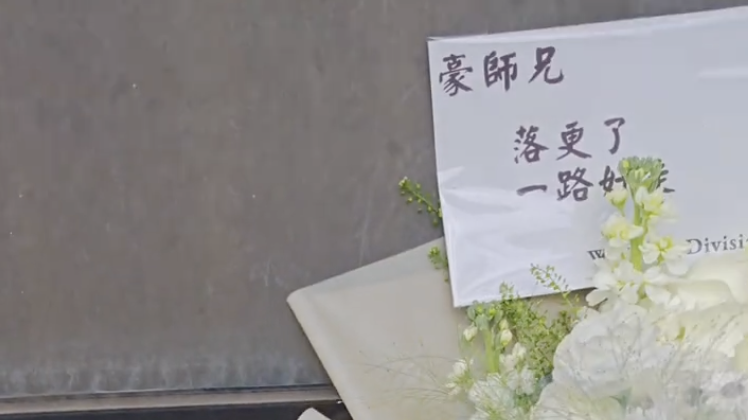 豪師兄
落更了
一路好走
Divisi